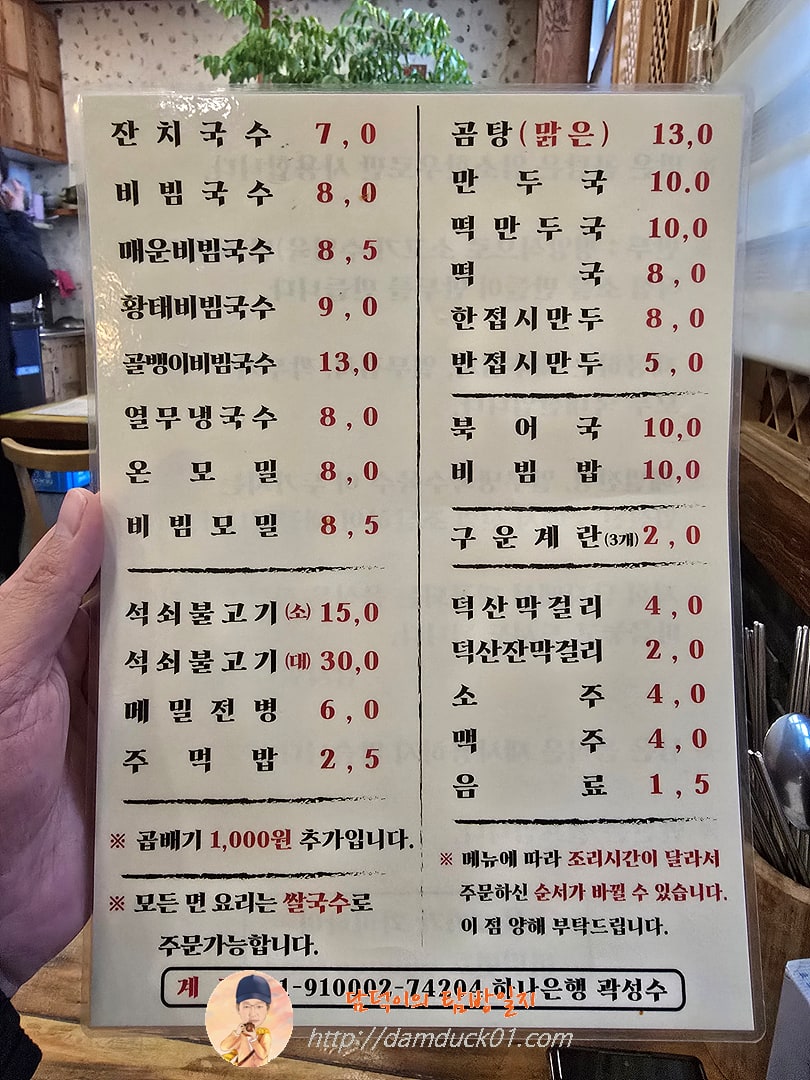 잔치국수 7,0
비빔국수 8,0
매운비빔국수 8,5
황태비빔국수 9,0
골뱅이비빔국수 13,0
열무냉국수 8,0
온모밀 8,0
비빔모밀 8,5
석쇠불고기(소) 15,0
석쇠불고기(대) 30,0
메밀전병 6,0
주먹밥 2,5
※ 곱배기 1,000원 추가입니다.
※ 모든 면 요리는 쌀국수로
주문가능합니다.
곰탕(맑은) 13,0
만두국 10.0
떡만두국 10,0
떡국 8,0
한접시만두 8,0
반접시만두 5,0
북어국 10,0
비빔밥 10,0
구운계란(3개) 2,0
덕산막걸리 4,0
덕산잔막걸리 2,0
소주 4,0
맥주 4,0
음료 1,5
※ 메뉴에 따라 조리시간이 달라서
주문하신 순서가 바뀔 수 있습니다.
이 점 양해 부탁드립니다.
계 1-910002-74204 하나은행 곽성수
담덕이의 탐방일지
http://damduck01.com